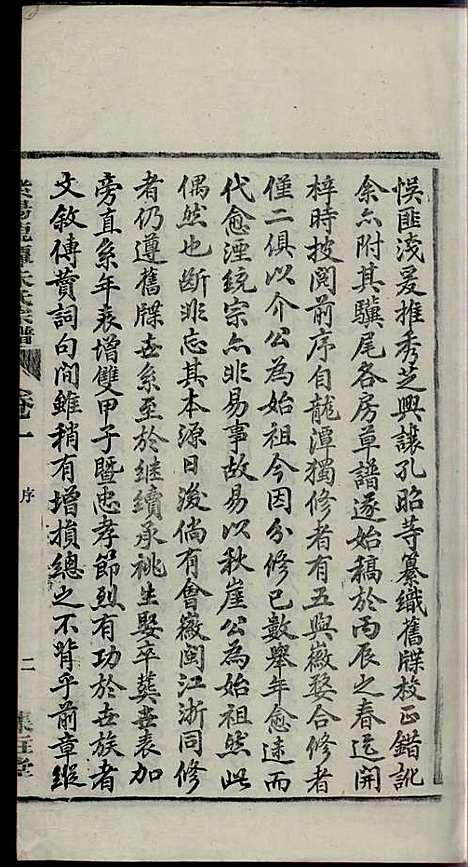 悮匪淺爰推秀芝興讓孔昭等纂織舊牒校正錯訛
余亦附其驥尾各房草譜遂始稿於丙辰之春迄開
梓時披閱前序自龍潭獨修者有五與徽婺合修者
僅二俱以介公為始祖今因分修已數舉年愈遠而
代愈湮統宗亦非易事故易以秋崖公為始祖然此
偶然也斷非忘其本源日後倘有會徽閩江浙同修
者仍遵舊牒世系至於継續承祧生娶卒葬世表加
旁直系年表增雙甲子暨忠孝節烈有功於世族者
文敘傳贊詞句間雖稍有增損總之不背乎前章縱
龍潭朱氏宗譜
卷一
序
二